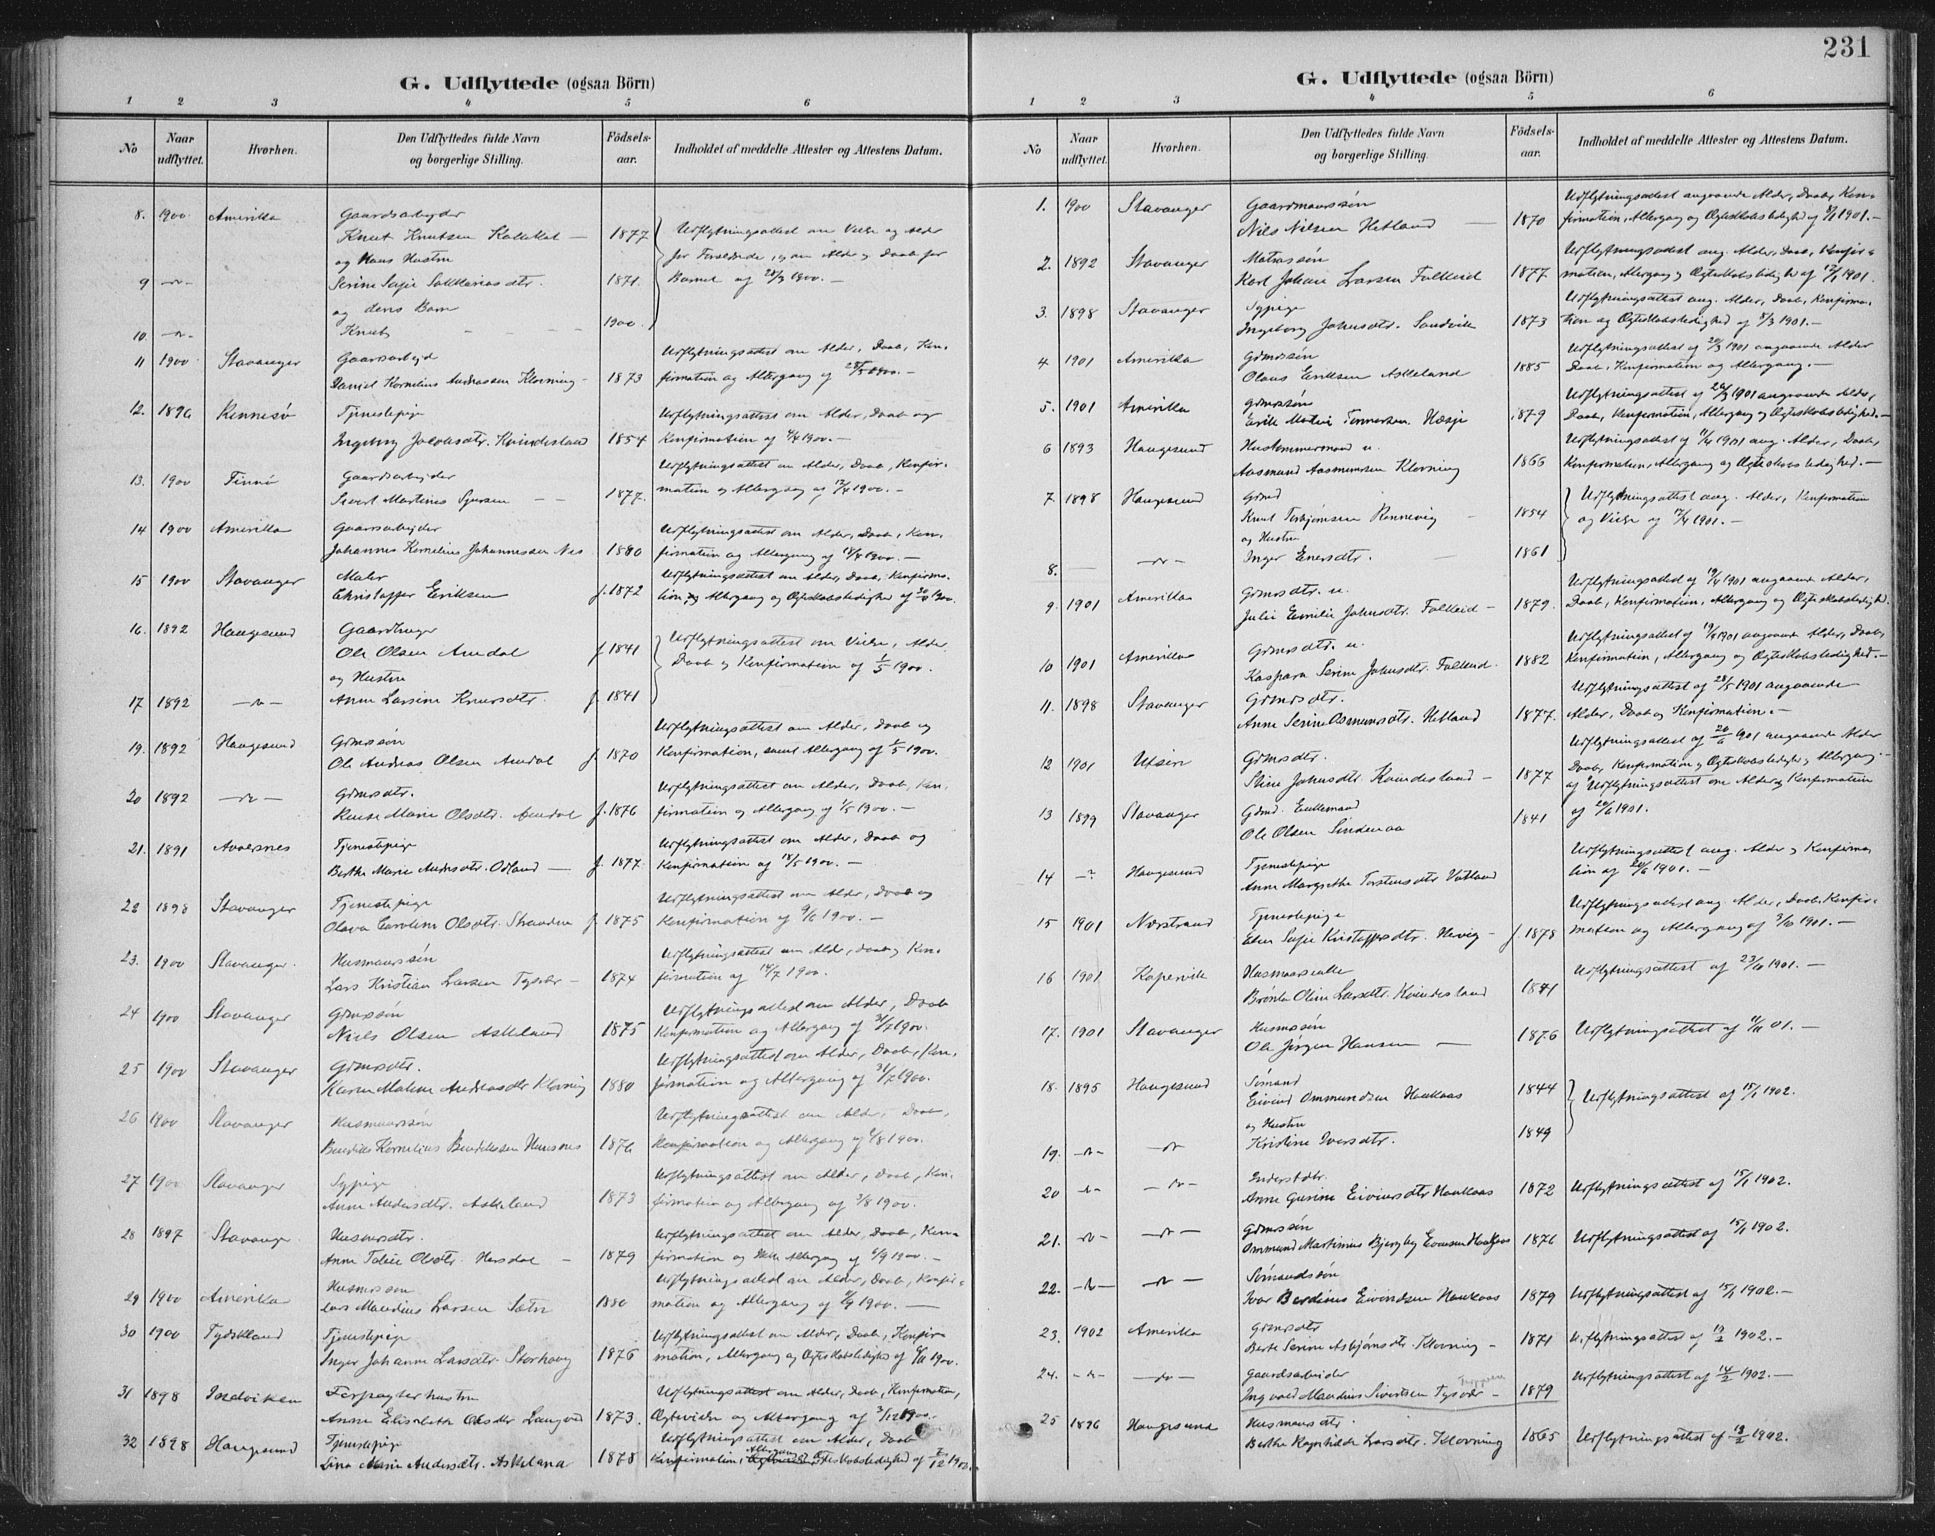 231
G. Udflyttede (ogsaa Börn)
1 2 3 4 5 6
No
Naar udflyttet.
Hvorhen.
Den Udflyttedes fulde Navn og borgerlige Stilling.
Födsels-aar.
Indholdet af meddelte Attester og Attestens Datum.
8. 1900 Amerika Gaardsarbejder
Knut Knutsen — 1877 Udflytningsattest om Vielse og Alder
og Hans Hustru for Forældrene, om Alder og Daab for
9 —"— Serine Sofie Sakkariasdtr. 1871. Barnet af 28/3 1900. —
og deres Barn
10. —"— Knut 1900.
11 1900 Stavanger Gaardsarbejd Udflytningsattest om Alder, Daab, Kon-
Daniel Kornelius Andreassen Klovning — 1873 firmation og Altergang af 1900. —
12. 1896 Rennesø Tjenestepige Udflytningsattest om Alder, Daab og
Ingeborg Jacobsdtr. Kvindesland 1854 Konfirmation af 1900. —
13. 1900 Finnø Gaardsarbejder Udflytningsattest om Alder, Daab, Konfir-
Sivert Martines Sjursen — — 1877. mation og Altergang af 1900. —
14 1900 Amerika Gaardsarbejder Udflytningsattest om Alder, Daab, Kon-
Johannes Kornelius Johannessen Nes 1880 firmation og Altergang af 1900. —
15 1900 Stavanger Maler Udflytningsattest om Alder, Daab, Konfirma-
Christoffer Eriksen f. 1872 tion, Altergang og Ægteskabsledighed af 1900.
16. 1892 Haugesund Gaardbruger Udflytningsattest om Vielse, Alder
Ole Olsen Amdal f. 1841 Daab og Konfirmation af 1/5 1900.
og Hustru
17 1892 —"— Anne Larsine Knutsdtr. f. 1841
19. 1892 Haugesund Gdmdssøn Udflytningsattest om Alder, Daab og
Ole Andreas Olsen Amdal f. 1870 Konfirmation, samt Altergang af 1/5 1900.
20 1892 —"— Gdmdsdtr. Udflytningsattest om Alder, Daab, Kon-
Marie Olsdtr. Amdal f. 1876 firmation og Altergang af 1/5 1900. —
21. 1891 Avaldsnes Tjenestepige Udflytningsattest om Alder, Daab og
Berthe Marie Andersdtr. Odland — f. 1877. Konfirmation af 18/5 1900. —
22 1898 Stavanger Tjenestepige Udflytningsattest om Alder, Daab og
Olava Caroline Olsdtr. Stranden f. 1875 Konfirmation af 9/6 1900. —
23. 1900 Stavanger. Husmandssøn Udflytningsattest om Alder, Daab og Kon-
Lars Kristian Larsen Tysvær — 1874 firmation af 14/7 1900.
24 1900 Stavanger Gdmdssøn Udflytningsattest om Alder, Daab
Niels Olsen Askeland 1875 Konfirmation og Altergang af 31/7 1900.
25 1900 Stavanger Gdmdsdtr. Udflytningsattest om Alder, Daab, Kon-
Karen Malene Andreasdtr Klovning 1880 firmation og Altergang af 31/7 1900.
26 1900 Stavanger Husmandssøn Udflytningsattest om Alder, Daab,
Bendik Kornelius Bendiksen 1876 Konfirmation og Altergang af /8 1900.
27 1900 Stavanger Sypige Udflytningsattest om Alder, Daab, Kon-
Anne Andersdtr. Askeland 1873 firmation og Altergang af 3/8 1900.
28 1897 Stavanger Husmdsdtr. Udflytningsattest om Alder, Daab, Kon-
Anne Olsdtr. Hersdal — 1879 firmation og Altergang af 6/9 1900. —
29 1900 Amerika Husmdssøn Udflytningsattest om Alder, Daab, Konfir-
Lars Maudius Larsen 1880 mation og Altergang af 1900. —
30 1900 Tydskland Tjenestepige Udflytningsattest om Alder, Daab, Konfir-
Inger Johanne Larsdtr. Storhaug 1876 mation, Altergang og Ægteskabsledighed af 1900.
31 1898 Forpagterhustru Udflytningsattest om Alder, Daab, Konfirmation,
Anne Elisabeth Olsdtr 1873. og Altergang af 3/12 1900.
32 1898 Haugesund Tjenestepige Udflytningsattest om Alder, Daab
Lina Marie Andersdtr. Askeland 1878 Konfirmation, Altergang, Ægteskabsledighed af
G. Udflyttede (ogsaa Börn)
1 2 3 4 5 6
No
Naar udflyttet.
Hvorhen.
Den Udflyttedes fulde Navn og borgerlige Stilling.
Födsels-aar.
Indholdet af meddelte Attester og Attestens Datum.
1. 1900 Stavanger Gaardmandssøn Udflytningsattest angaaende Alder, Daab, Kon-
Nils Nilsen Hetland — 1870 firmation, Altergang og Ægteskabsledighed af 1901. —
2. 1892 Stavanger Matrossøn Udflytningsattest ang. Alder, Daab, Konfir-
Karl Johan Larsen Falkeid 1877 mation, Altergang og Ægteskabsledighed af 1901.
3. 1898 Stavanger Sypige Udflytningsattest ang. Alder, Daab, Konfirma-
Ingeborg Johnsdtr. Sandvik 1873 tion og Ægteskabsledighed af 1901. —
4 1901 Amerika Gdmdssøn Udflytningsattest af 20/3 1901 angaaende Alder
Olaus Eriksen Askeland 1885 Daab, Konfirmation og Altergang. —
5. 1901 Amerika Gdmdssøn Udflytningsattest af 1901 angaaende Alder,
Erik Mathias Tonnessen 1879 Daab, Konfirmation, Altergang og Ægteskabsledighed. —
6 1893 Haugesund Hustømmermand u. Udflytningsattest af 11/4 1901 ang. Alder, Daab,
Aasmund Aasmundsen Klovning 1866 Konfirmation, Altergang og Ægteskabsledighed. —
7 1898 Haugesund Gdmd Udflytningsattest ang. Alder, Konfirmation
Knut Torbjørnsen Rennevig 1854 og Vielse af 1901. —
og Hustru
8. — —"— Inger Enersdtr. 1861
9. 1901 Amerika Gdmdsdtr. u. Udflytningsattest af 19/4 1901 angaaende Alder,
Julie Emilie Johnsdtr. Falkeid — 1879. Daab, Konfirmation, Altergang og Ægteskabsledighed.
10 1901 Amerika Gdmdsdtr. u. Udflytningsattest af 19/4 1901 angaaende Alder, Daab,
Kaspara Serine Johnsdtr. Falkeid. 1882 Konfirmation, Altergang og Ægteskabsledighed. —
11. 1898 Stavanger Gdmdsdtr. Udflytningsattest af 28/5 1901 angaaende
Anne Serine Osmundsdtr. Hetland 1877. Alder, Daab og Konfirmation. —
12 1901 Utsire Gdmdsdtr. Udflytningsattest af 20/6 1901 angaaende Alder
Stine Johnsdtr. Kvindesland — 1877 Daab, Konfirmation og Ægteskabsledighed, Altergang —
13 1899 Stavanger Gdmd. Enkemand Udflytningsattest om Alder og Konfirmation
Ole Olsen Sindenaa 1841 af 20/6 1901.
14 —"— Haugesund Tjenestepige Udflytningsattest ang. Alder og Konfirma-
Anne Margrethe Torstensdtr Vatland tion af 20/6 1901. —
15 1901 Nærstrand Tjenestepige Udflytningsattest ang. Alder, Daab, Konfir-
Elen Sofie Kristoffersdtr. Hervig — f. 1878 mation og Altergang af 1901. —
16 1901 Kopervik Husmandsenke Udflytningsattest af 23/10 1901. —
Brønla Oline Larsdtr. Kvindesland 1841
17. 1901 Stavanger Husmdssøn
Ole Jørgen Hansen — 1876 Udflytningsattest af 01. —
18. 1895 Haugesund Sømand
Eivind Ommundsen Haukaas 1844 Udflytningsattest af 15/1 1902.
og Hustru
19. —"— —"— Kristine Iversdtr. 1849
20 —"— —"— Anne Gurine Eivindsdtr Haukaas 1872 Udflytningsattest af 15/1 1902.
21. —"— —"— Gdmdssøn
Ommund Martinius Bjergby Eivindsen Haukaas 1876 Udflytningsattest af 15/1 1902.
22. —"— —"— Sømandssøn
Ivar Berdinus Eivindsen Haukaas 1879 Udflytningsattest af 15/1 1902. —
23. 1902 Amerika Gdmdsdtr
Berte Serine Asbjørnsdtr. Klovning — 1871 Udflytningsattest af 13/2 1902. —
24. —"— —"— Gaardsarbeider
Ingvald Maudius Sivertsen Tysvær — 1879 Udflytningsattest af 14/2 1902. —
25 1896 Haugesund Husmandsdtr.
Berthe Ragnhilde Larsdtr. Klovning 1865 Udflytningsattest af 13/2 1902.